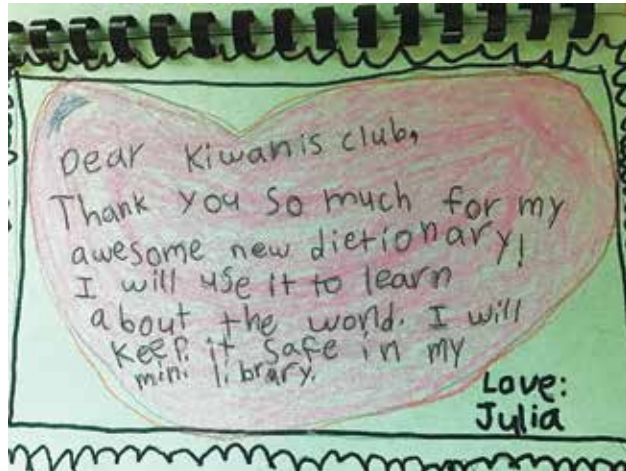 Dear Kiwanis club,
Thank you so much for my
awesome new dictionary!
I will use it to learn
about the world. I will
keep it safe in my
mini library.
Love:
Julia